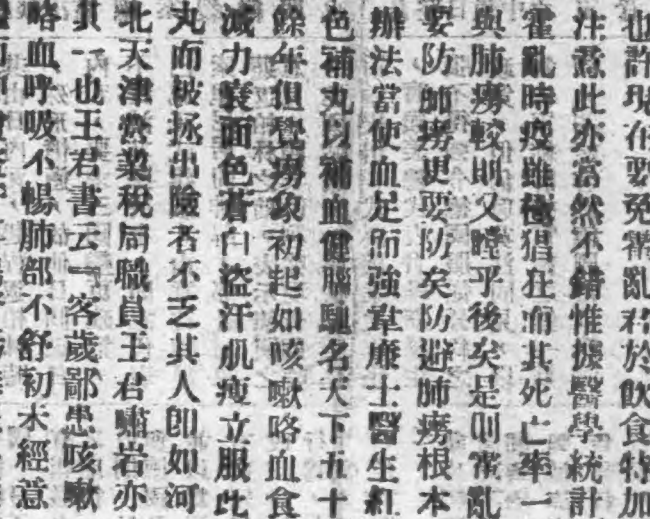 也許現在要免霍亂君於飲食特加
注意此亦當然不錯惟據醫學統計
霍亂時疫雖極猖狂而其死亡率一
與肺癆較則又瞠乎後矣足則霍亂
要防肺癆更要防矣防避肺癆根本
辦法當使血足而強韋廉士醫生紅
色補丸以補血健腦馳名天下五十
餘年但覺癆象初起如咳嗽咯血食
減力衰面色蒼白盜汗肌瘦立服此
丸而被拯出險者不乏其人卽如河
北天津營業稅局職員王君嘯岩亦
其一也王君書云『客歲鄙患咳嗽
咯血呼吸不暢肺部不舒初未經意